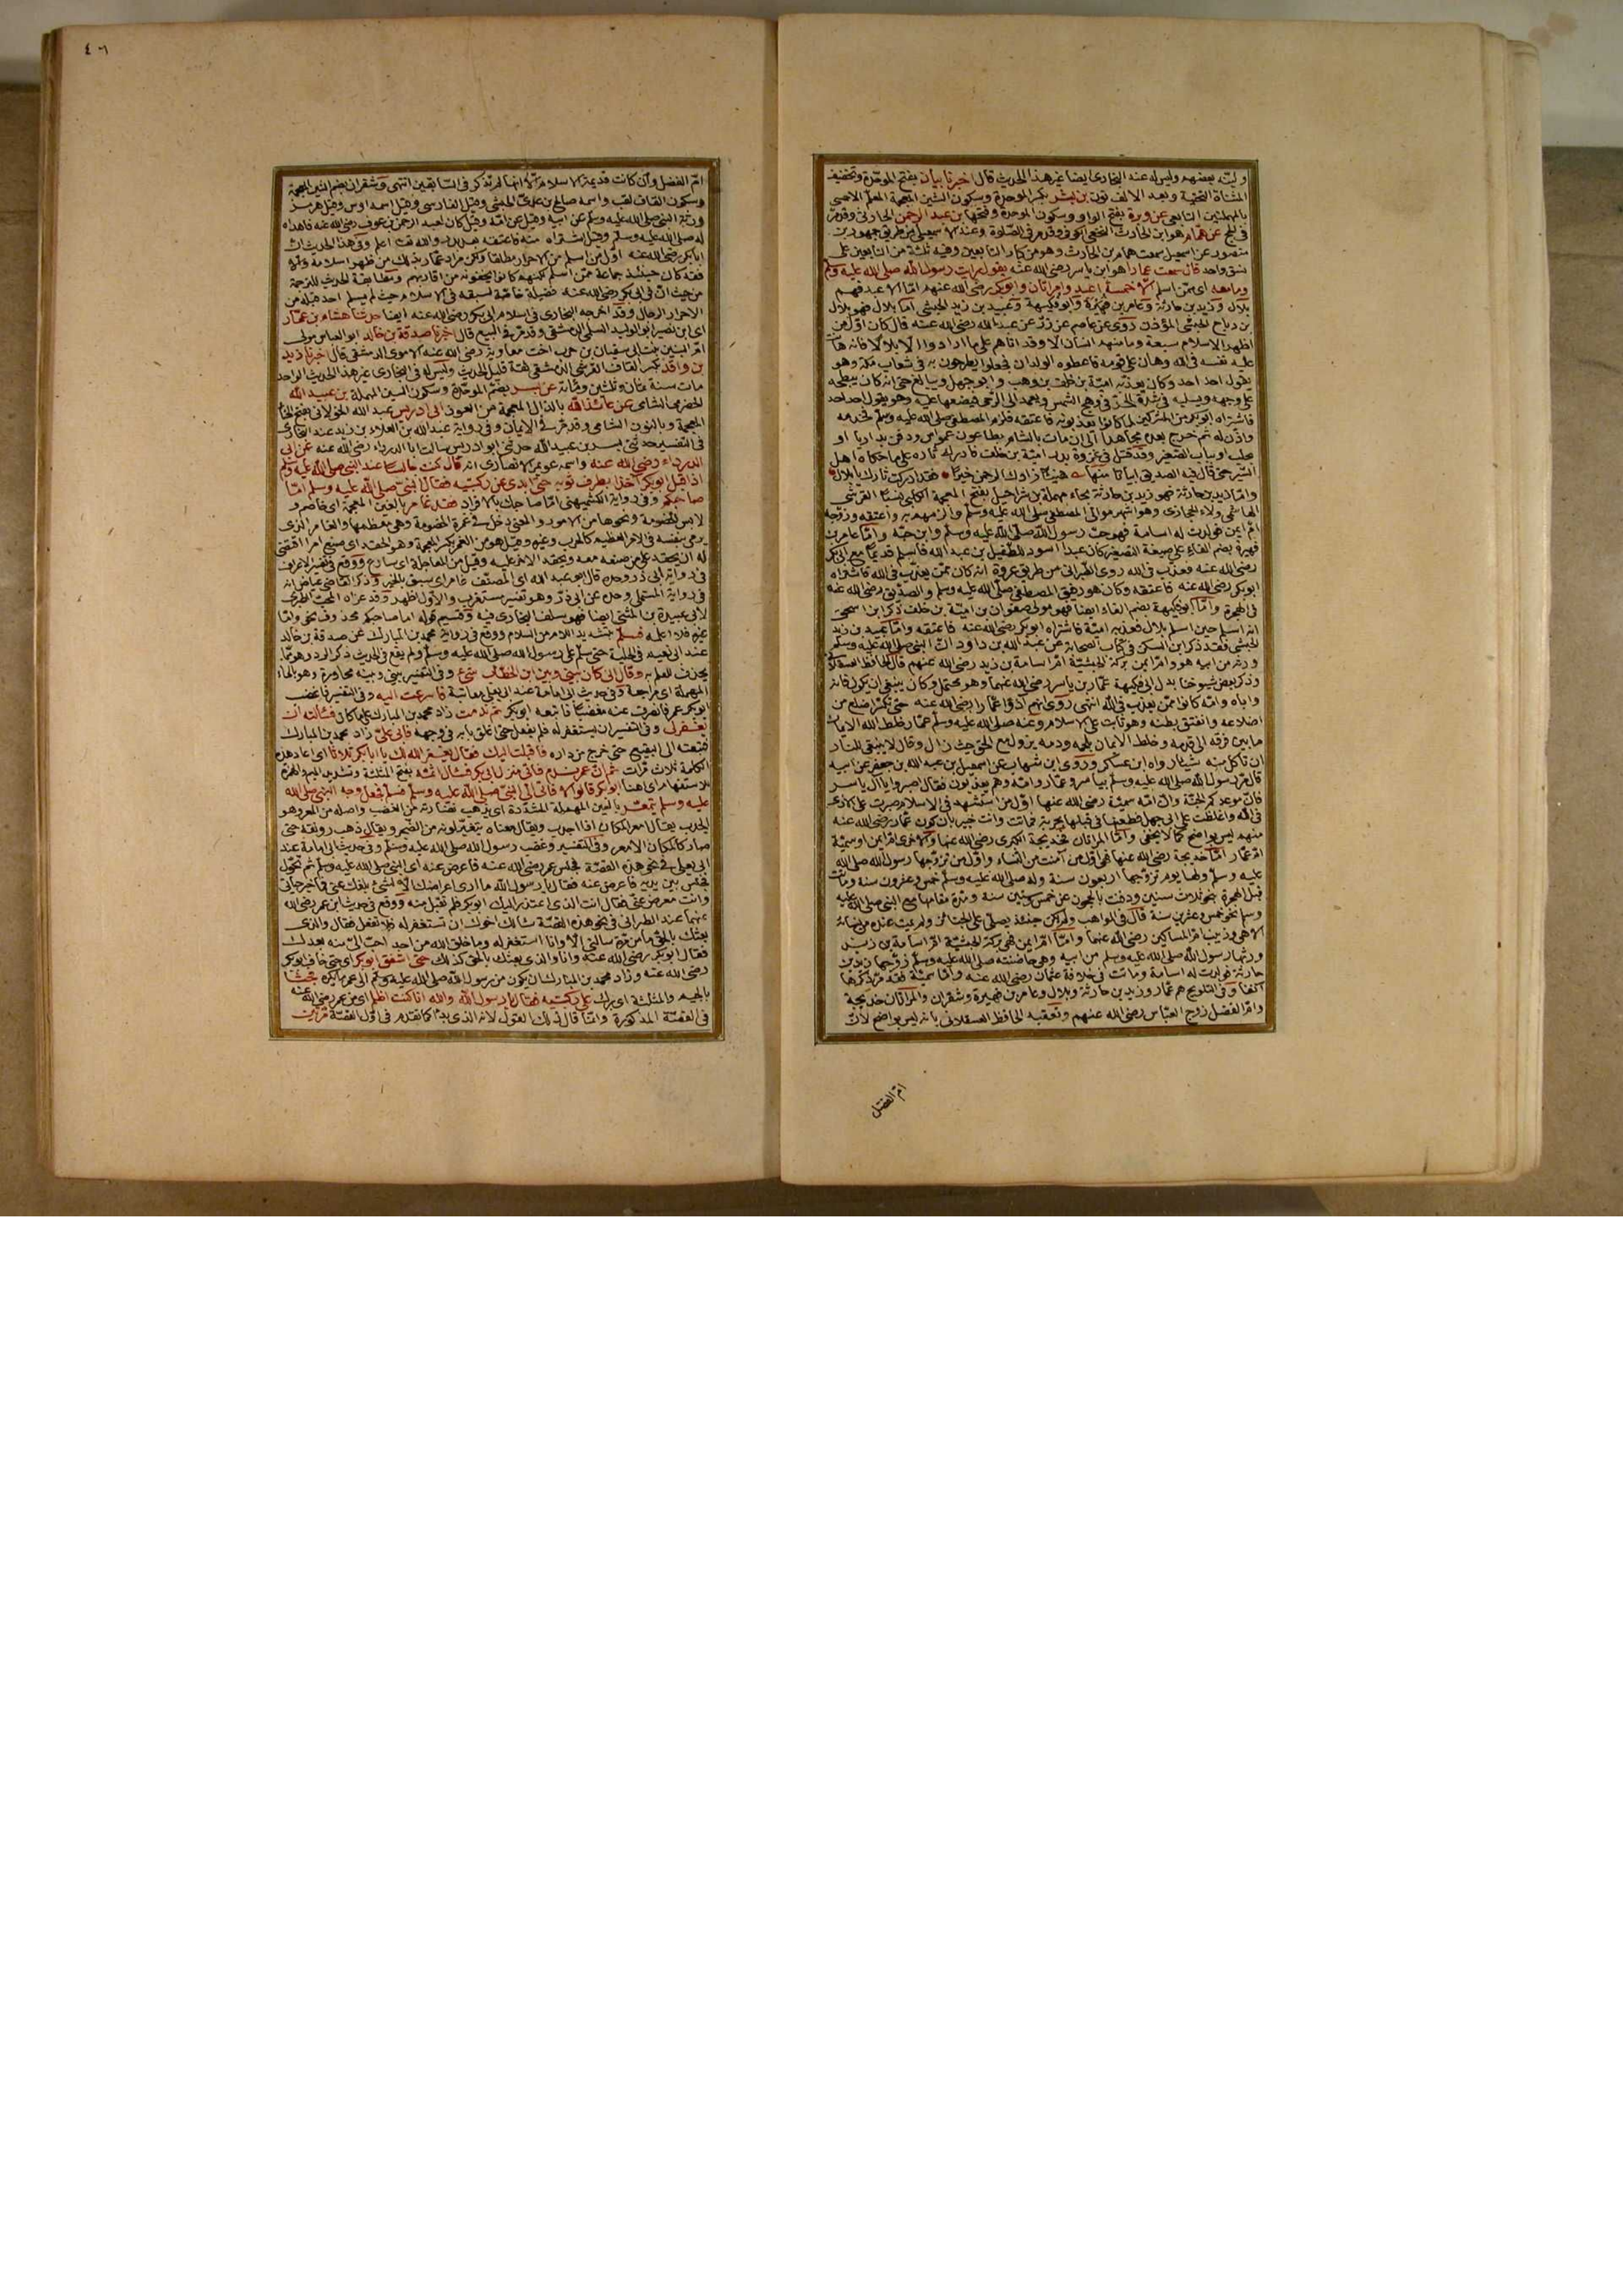 ولينه بعضهم وليس له عند البخاري ايضا غير هذا الحديث قال اخبرنا بيان بفتح الموحدة وتخفيف
المثناة التحتية وبعد الالف نون بن بشر بكسر الموحدة وسكون الشين المعجمة المعلم الاحمسي
بالمهملتين التابعي عن وبرة بفتح الواو وسكون الموحدة وفتحها بن عبد الرحمن الحارثي وقد مر
في الحج عن همام هو ابن الحارث النخعي الكوفي وقد مر في الصلوة وعند الاسمعيلي من طريق جهور بن
منصور عن اسمعيل سمعت همام بن الحارث وهو من كبار التابعين وفيه ثلثة من التابعين على
نسق واحد قال سمعت عمارا هو ابن ياسر رضي الله عنه يقول رايت رسول الله صلى الله عليه وسلم
وما معه اي ممن اسلم الا خمسة اعبد وامراتان وابو بكر رضي الله عنهم اما الاعبد فهم
بلال وزيد بن حارثة وعامر بن فهيرة وابو فكيهة وعبيد بن زيد الحبشي اما بلال فهو بلال
بن رباح الحبشي المؤذن روى عن عاصم عن زر عن عبد الله رضي الله عنه قال كان اول من
اظهر الاسلام سبعة وما منهم انسان الا وقد اتاهم على ما ارادوا الا بلالا فانه هانت
عليه نفسه في الله وهان على قومه فاعطوه الولدان فجعلوا يطوفون به في شعاب مكة وهو
يقول احد احد وكان يعذبه امية بن خلف بن وهب وابو جهل ويبالغ حتى انه كان يبطحه
على وجهه ويسلبه في شدة الحر في وهج الشمس ويعمد الى الرحى فيضعها عليه وهو يقول احد احد
فاشتراه ابو بكر من المشركين لما كانوا يعذبونه فاعتقه فلزم المصطفى صلى الله عليه وسلم لخدمه
واذن له ثم خرج بعده مجاهدا الى ان مات بالشام بطاعون عمواس ودفن بداريا او
بحلب او بباب الصغير وقد قتل في غزوة بدر امية بن خلف
السير حتى قال فيه الصديق ابياتا منها هنيئا زادك الرحمن خيرا فقد ادركت ثارك يا بلال
واما زيد بن حارثة فهو زيد بن حارثة بحاء مهملة بن شراحيل بفتح المعجمة الكلبي نسبا القرشي
الهاشمي ولاء الحجازي وهو اشهر موالي المصطفى صلى الله عليه وسلم واعتقه وزوجه
ام ايمن فولدت له اسامة فهو حب رسول الله صلى الله عليه وسلم وابن حبه واما عامر بن
فهيرة بضم الفاء على صيغة التصغير كان عبدا اسود للطفيل بن عبد الله فاسلم قديما مع ابي بكر
رضي الله عنه فعذب في الله روى الطبراني من طريق عروة انه كان ممن يعذب في الله فاشتراه
ابو بكر رضي الله عنه فاعتقه وكان هو رفيق المصطفى صلى الله عليه وسلم والصديق رضي الله عنه
في الهجرة واما ابو فكيهة بضم الفاء ايضا فهو مولى صفوان بن امية بن خلف ذكر ابن اسحق
انه اسلم حين اسلم بلال فعذبه امية فاشتراه ابو بكر رضي الله عنه فاعتقه واما عبيد بن زيد
الحبشي فقد ذكر ابن السكن في كتاب الصحابة عن عبد الله بن داود ان النبي صلى الله عليه وسلم
ورثه من ابيه هو وام ايمن بركة الحبشية ام اسامة بن زيد رضي الله عنهم قال الحافظ العسقلاني
وذكر بعض شيوخنا بدل ابي فكيهة عمار بن ياسر رضي الله عنهما وهو محتمل وكان ينبغي ان يكون فانه
واباه وامه كانوا ممن يعذب في الله انتهى روى انهم اذوا عمارا رضي الله عنه حتى تكسر اضلع من
اضلاعه وانفتق بطنه وهو ثابت على الاسلام وعنه صلى الله عليه وسلم عمار خلط الله الايمان
ما بين قرنه الى قدمه وخلط الايمان بلحمه ودمه يزول مع الحق حيث زال وقال لا ينبغي للنار
ان تاكل منه شيئا رواه ابن عساكر وروى ابن شهاب عن اسمعيل بن عبد الله بن جعفر عن ابيه
قال مر رسول الله صلى الله عليه وسلم بياسر وعمار وامه وهم يعذبون فقال اصبروا يا آل ياسر
فان موعدكم الجنة وان امه سمية رضي الله عنها اول من استشهد في الاسلام صبرت على الاذى
في الله واغلظت على ابي جهل فطعنها في قبلها بحربة فماتت وانت خبير بان كون عمار رضي الله عنه
منهم ليس بواضح كما لا يخفى واما المراتان فخديجة الكبرى رضي الله عنها والاخرى ام ايمن او سمية
ام عمار اما خديجة رضي الله عنها فهي اول من آمنت من النساء واول من تزوجها رسول الله صلى الله
عليه وسلم ولها يوم تزوجها اربعون سنة وله صلى الله عليه وسلم خمس وعشرون سنة وماتت
قبل الهجرة بنحو ثلاث سنين ودفنت بالحجون عن خمس وستين سنة ومدة مقامها مع النبي صلى الله عليه
وسلم نحو خمس وعشرين سنة قال في المواهب ولم يكن حينئذ يصلى على الجنائز ولم يمت عنده من نسائه
الا هي وزينب ام المساكين رضي الله عنهما واما ام ايمن فهي بركة الحبشية ام اسامة بن زيد
ورثها رسول الله صلى الله عليه وسلم من ابيه وهي حاضنته صلى الله عليه وسلم زوجها زيد بن
حارثة فولدت له اسامة وماتت في خلافة عثمان رضي الله عنه واما سمية فقد مر ذكرها
آنفا وفي التلويح هم عمار وزيد بن حارثة وبلال وعامر بن فهيرة وشقران والمراتان خديجة
وام الفضل زوج العباس رضي الله عنهم وتعقبه الحافظ العسقلاني بانه ليس بواضح لان
ام الفضل
٤٠٦
ام الفضل وان كانت قديمة الاسلام الا انها لم تذكر في السابقين انتهى وشقران بضم الشين المعجمة
وسكون القاف لقب واسمه صالح بن عدي الحبشي وقيل الفارسي وقيل اسمه اوس وقيل هرمز
ورثه النبي صلى الله عليه وسلم عن ابيه وقيل عن امه وقيل كان لعبد الرحمن بن عوف رضي الله عنه فاهداه
له صلى الله عليه وسلم وقيل اشتراه منه فاعتقه بعد بدر والله تعالى اعلم وفي هذا الحديث ان
ابا بكر رضي الله عنه اول من اسلم من الاحرار مطلقا ولكن مراد عمار بذلك من ظهر اسلامه والا
فقد كان حينئذ جماعة ممن اسلم لكنهم كانوا يخفونه من اقاربهم ومطابقة الحديث للترجمة
من حيث ان في ابي بكر رضي الله عنه فضيلة خاصة لسبقه في الاسلام حيث لم يسلم احد قبله من
الاحرار الرجال وقد اخرجه البخاري في اسلام ابي بكر رضي الله عنه ايضا حدثنا هشام بن عمار
اي ابن نصير ابو الوليد السلمي الدمشقي وقد مر في البيع قال اخبرنا صدقة بن خالد ابو العباس مولى
ام البنين بنت ابي سفيان بن حرب اخت معاوية رضي الله عنه الاموي الدمشقي قال اخبرنا زيد
بن واقد بكسر القاف القرشي الدمشقي ثقة قليل الحديث وليس له في البخاري غير هذا الحديث الواحد
مات سنة ثمان وثلثين ومائة عن بسر بضم الموحدة وسكون السين المهملة بن عبيد الله
الحضرمي الشامي عن عائذ الله بالذال المعجمة من العوذ ابي ادريس عبد الله الخولاني بفتح الخاء
المعجمة وبالنون الشامي وقد مر في الايمان وفي رواية عبد الله بن العلاء بن زيد عند البخاري
في التفسير حدثني بسر بن عبيد الله حدثني ابو ادريس سالت ابا الدرداء رضي الله عنه عن ابي
الدرداء رضي الله عنه واسمه عويمر الانصاري انه قال كنت جالسا عند النبي صلى الله عليه وسلم
اذ اقبل ابو بكر آخذا بطرف ثوبه حتى ابدى عن ركبتيه فقال النبي صلى الله عليه وسلم اما
صاحبكم وفي رواية الكشميهني اما صاحبك بالافراد فقد غامر بالغين المعجمة اي خاصم و
لابس الخصومة ونحوها من الامور والمعنى دخل في غمرة الخصومة وهي معظمها والغامر الذي
يرمي بنفسه في الامر العظيم كالحرب وغيره وقيل هو من الغمر بكسر المعجمة وهو الحقد اي صنع امرا اقتضى
له ان يحقد على من صنعه معه ويحقد الآخر عليه
في رواية ابي ذر وحده قال ابو عبد الله اي المصنف غامر اي سبق بالخير وذكر القاضي عياض انه
في رواية المستملي وحده عن ابي ذر وهو تفسير مستغرب والاول اظهر وقد عزاه المحب الطبري
لابي عبيدة بن المثنى ايضا فهو سلف البخاري فيه وقسيم قوله اما صاحبكم محذوف نحو واما
غيره فلا اعلمه فسلم بتشديد اللام من السلام ووقع في رواية محمد بن المبارك عن صدقة بن خالد
عند ابي نعيم في الحلية حتى سلم على رسول الله صلى الله عليه وسلم ولم يقع في الحديث ذكر الرد وهو مما
يحذف للعلم به وقال اني كان بيني وبين ابن الخطاب شيء وفي التفسير بيني وبينه محاورة وهو بالحاء
المهملة اي مراجعة وفي حديث ابي امامة عند ابي يعلى معاتبة فاسرعت اليه وفي التفسير فاغضب
ابو بكر عمر فانصرف عنه مغضبا فاتبعه ابو بكر ثم ندمت زاد محمد بن المبارك على ما كان فسالته ان
يغفر لي وفي التفسير ان يستغفر له فلم يفعل حتى اغلق بابه في وجهه فابى علي زاد محمد بن المبارك
فتبعته الى البقيع حتى خرج من داره فاقبلت اليك فقال يغفر الله لك يا ابا بكر ثلاثا اي اعاد هذه
الكلمة ثلاث مرات ثم ان عمر ندم فاتى منزل ابي بكر فسال اثمه بفتح المثلثة وتشديد الميم والهمزة
للاستفهام اي اهنا ابو بكر قالوا لا فاتى الى النبي صلى الله عليه وسلم فسلم فجعل وجه النبي صلى الله
عليه وسلم يتمعر بالعين المهملة المشددة اي يذهب نضارته من الغضب واصله من المعر وهو
الجدب يقال امعر المكان اذا اجدب ويقال معناه يتغير لونه من الضجر ويقال ذهب رونقه حتى
صار كالمكان الامعر وفي التفسير وغضب رسول الله صلى الله عليه وسلم وفي حديث ابي امامة عند
ابي يعلى في نحو هذه القصة فجلس عمر رضي الله عنه فاعرض عنه اي النبي صلى الله عليه وسلم ثم تحول
فجلس بين يديه فاعرض عنه فقال يا رسول الله ما ارى اعراضك الا لشيء بلغك عني فما خير حياتي
وانت معرض عني فقال انت الذي اعتذر اليك ابو بكر فلم تقبل منه ووقع في حديث ابن عمر رضي الله
عنهما عند الطبراني في نحو هذه القصة سالك اخوك ان تستغفر له فلم تفعل فقال والذي
بعثك بالحق ما من مرة سالني الا وانا استغفر له وما خلق الله من احد احب الي منه بعدك
فقال ابو بكر رضي الله عنه وانا والذي بعثك بالحق كذلك حتى اشفق ابو بكر اي حتى خاف ابو بكر
رضي الله عنه وزاد محمد بن المبارك ان يكون من رسول الله صلى الله عليه وسلم الى عمر ما يكره فجثا
بالجيم والمثلثة اي برك على ركبتيه فقال يا رسول الله والله انا كنت اظلم اي من عمر رضي الله عنه
في القصة المذكورة وانما قال ذلك القول لانه الذي بدا كما تقدم في اول القصة مرتين